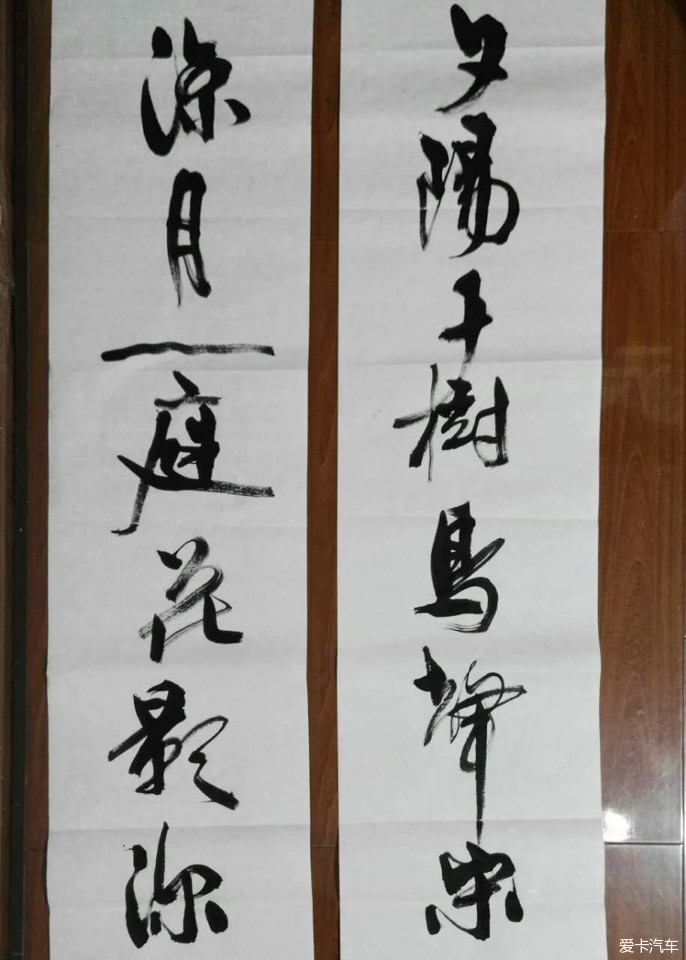 夕陽千樹鳥聲
涼月一庭花影深
爱卡汽车